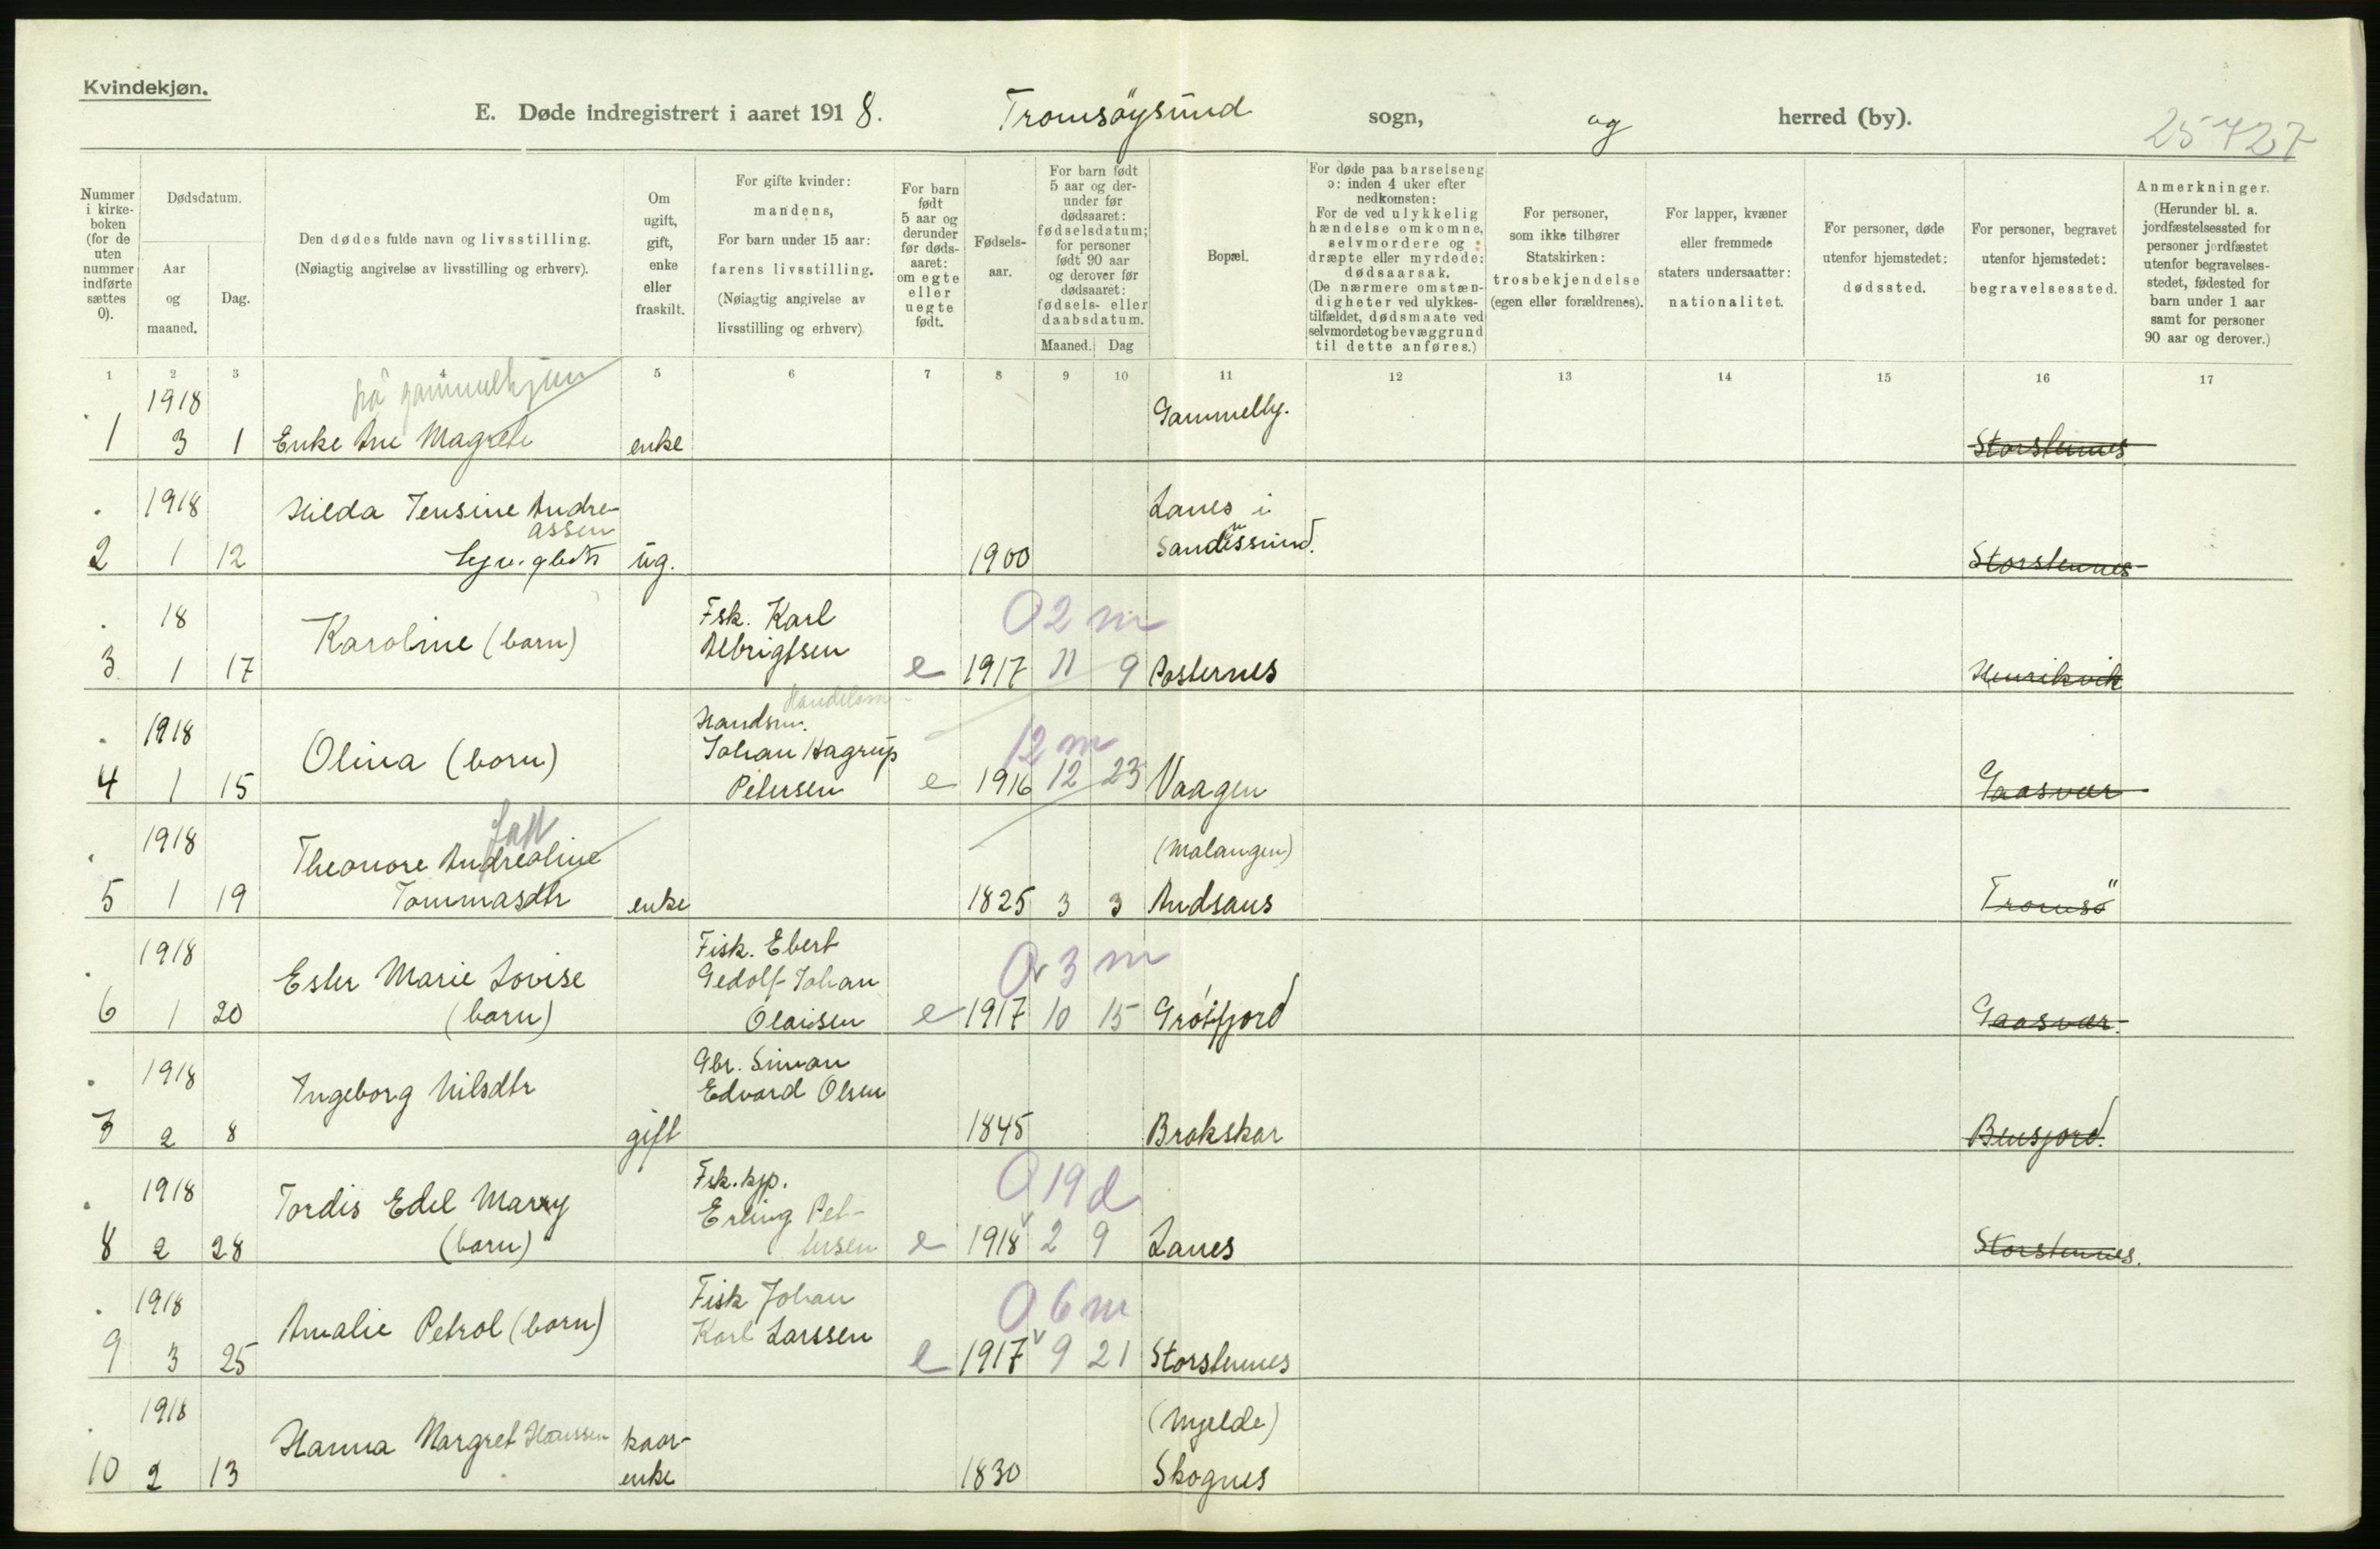 Kvindekjøn.
E. Døde indregistrert i aaret 1918. Tromsöysund sogn, og herred (by).
25727
Nummer i kirke-boken (for de uten nummer indførte sættes 0).
Dødsdatum.
Aar og maaned.
Dag.
Den dødes fulde navn og livsstilling.
(Nøiagtig angivelse av livsstilling og erhverv).
Om ugift, gift, enke eller fraskilt.
For gifte kvinder: mandens,
For barn under 15 aar: farens livsstilling.
(Nøiagtig angivelse av livsstilling og erhverv)
For barn født 5 aar og derunder før døds-aaret: om egte eller uegte født.
Fødsels-aar.
For barn født 5 aar og der-under før dødsaaret: fødselsdatum; for personer født 90 aar og derover før dødsaaret: fødsels- eller daabsdatum.
Maaned. Dag
Bopæl.
For døde paa barselseng ɔ: inden 4 uker efter nedkomsten:
For de ved ulykkelig hændelse omkomne, selvmordere og dræpte eller myrdede: dødsaarsak.
(De nærmere omstæn-digheter ved ulykkes-tilfældet, dødsmaate ved selvmordet og bevæggrund til dette anføres.)
For personer, som ikke tilhører Statskirken: trosbekjendelse (egen eller forældrenes).
For lapper, kvæner eller fremmede staters undersaatter: nationalitet.
For personer, døde utenfor hjemstedet: dødssted.
For personer, begravet utenfor hjemstedet: begravelsessted.
Anmerkninger.
(Herunder bl. a. jordfæstelsessted for personer jordfæstet utenfor begravelses-stedet, fødested for barn under 1 aar samt for personer 90 aar og derover.)
1 2 3 4 5 6 7 8 9 10 11 12 13 14 15 16 17
1918
på gammelhjem
Gammelby.
1 3 1 Enke Ane Magrete enke Storstennes
1918 Hilda Jensine Andre- Lanes i
assen
2 1 12 ug. 1900 Sandessund. Storstennes
18 Karoline (barn) Fsk. Karl 02m
Albrigtsen
3 1 17 e 1917 11 9 Posternes Henrikvik
Handelsm
1918 Handsm.
Olina (barn) Johan Hagrup 12m
4 1 15 Petersen e 1916 12 23 Vaagen Gaasvær
1918 Theanore Andrealine (Malangen)
5 1 19 Tommasdtr enke 1825 3 3 Andsans Tromsö
1918 Fisk. Ebert 0 3m
Ester Marie Lovise Gedolf Johan
6 1 20 (barn) Olaisen e 1917 10 15 Grötfjord Gaasvær.
1918 Gbr. Simon
Ingeborg Nilsdtr Edvard Olsen
7 2 8 gift 1845 Brokskar Bensjord.
1918 Tordis Edel Marry Fsk.kjp. 019d
Erling Pet-
8 2 28 (barn) ersen e 1918 2 9 Lanes Storstennes.
1918 Fisk Johan 06m
Amalie Petrol (barn) Karl Larssen
9 3 25 e 1917 9 21 Storstennes
1918 (Mjelde)
Hanna Margret Hanssen kaar-
10 2 13 enke 1830 Skognes